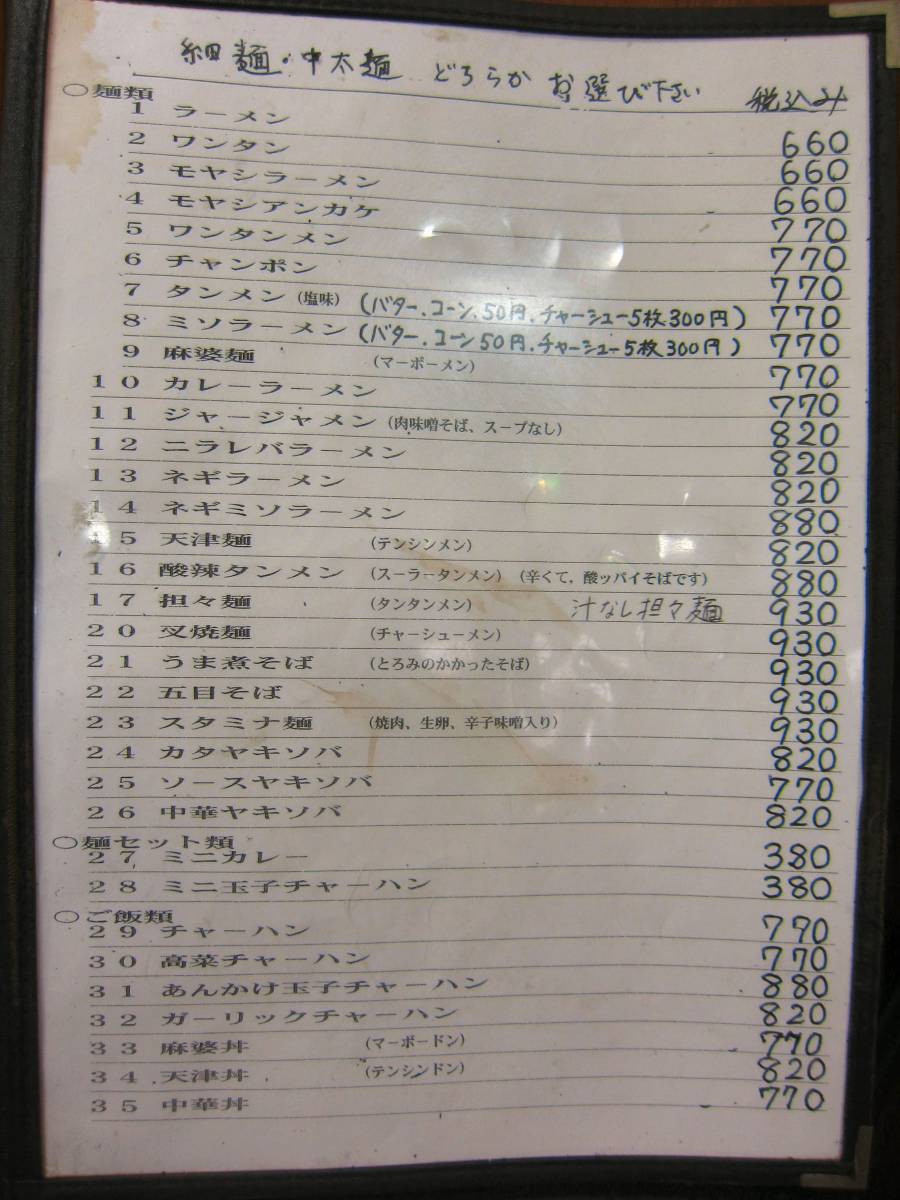 細麺・中太麺 どちらか お選び下さい 税込み
○麺類
1 ラーメン 660
2 ワンタン 660
3 モヤシラーメン 660
4 モヤシアンカケ 770
5 ワンタンメン 770
6 チャンポン 770
7 タンメン (塩味) (バター.コーン.50円.チャーシュー5枚300円) 770
8 ミソラーメン (バター.コーン50円.チャーシュー5枚300円) 770
9 麻婆麺 (マーボーメン) 770
10 カレーラーメン 770
11 ジャージャメン (肉味噌そば、スープなし) 820
12 ニラレバラーメン 820
13 ネギラーメン 820
14 ネギミソラーメン 880
15 天津麺 (テンシンメン) 820
16 酸辣タンメン (スーラータンメン) (辛くて，酸ッパイそばです) 880
17 担々麺 (タンタンメン) 汁なし担々麺 930
20 叉焼麺 (チャーシューメン) 930
21 うま煮そば (とろみのかかったそば) 930
22 五目そば 930
23 スタミナ麺 (焼肉、生卵、辛子味噌入り) 930
24 カタヤキソバ 820
25 ソースヤキソバ 770
26 中華ヤキソバ 820
○麺セット類
27 ミニカレー 380
28 ミニ玉子チャーハン 380
○ご飯類
29 チャーハン 770
30 高菜チャーハン 770
31 あんかけ玉子チャーハン 880
32 ガーリックチャーハン 820
33 麻婆丼 (マーボードン) 770
34 天津丼 (テンシンドン) 820
35 中華丼 770